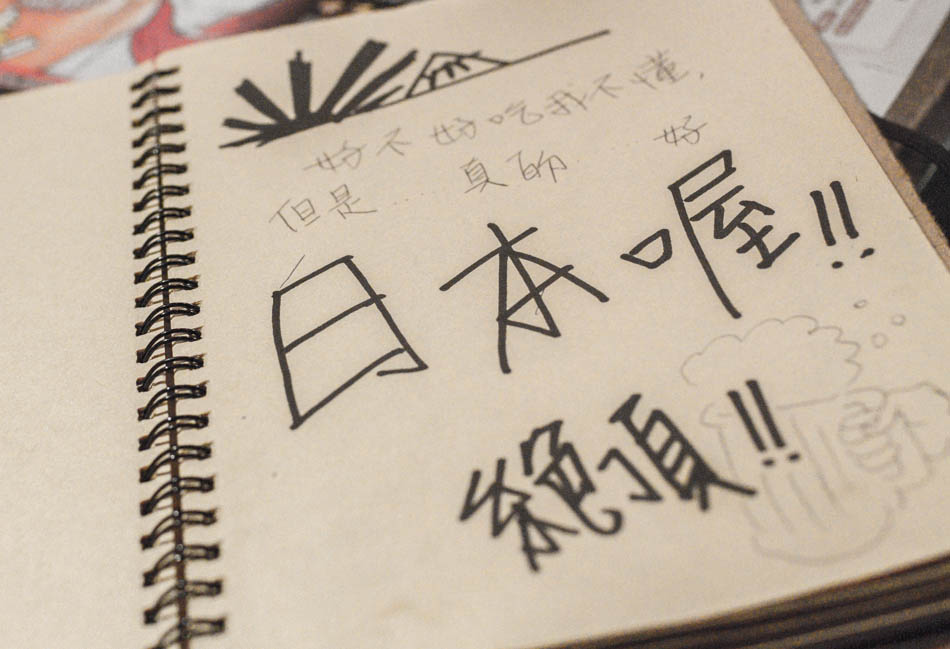 好不好吃我不懂,
但是... 真的..... 好
日本喔!!
絕頂!!